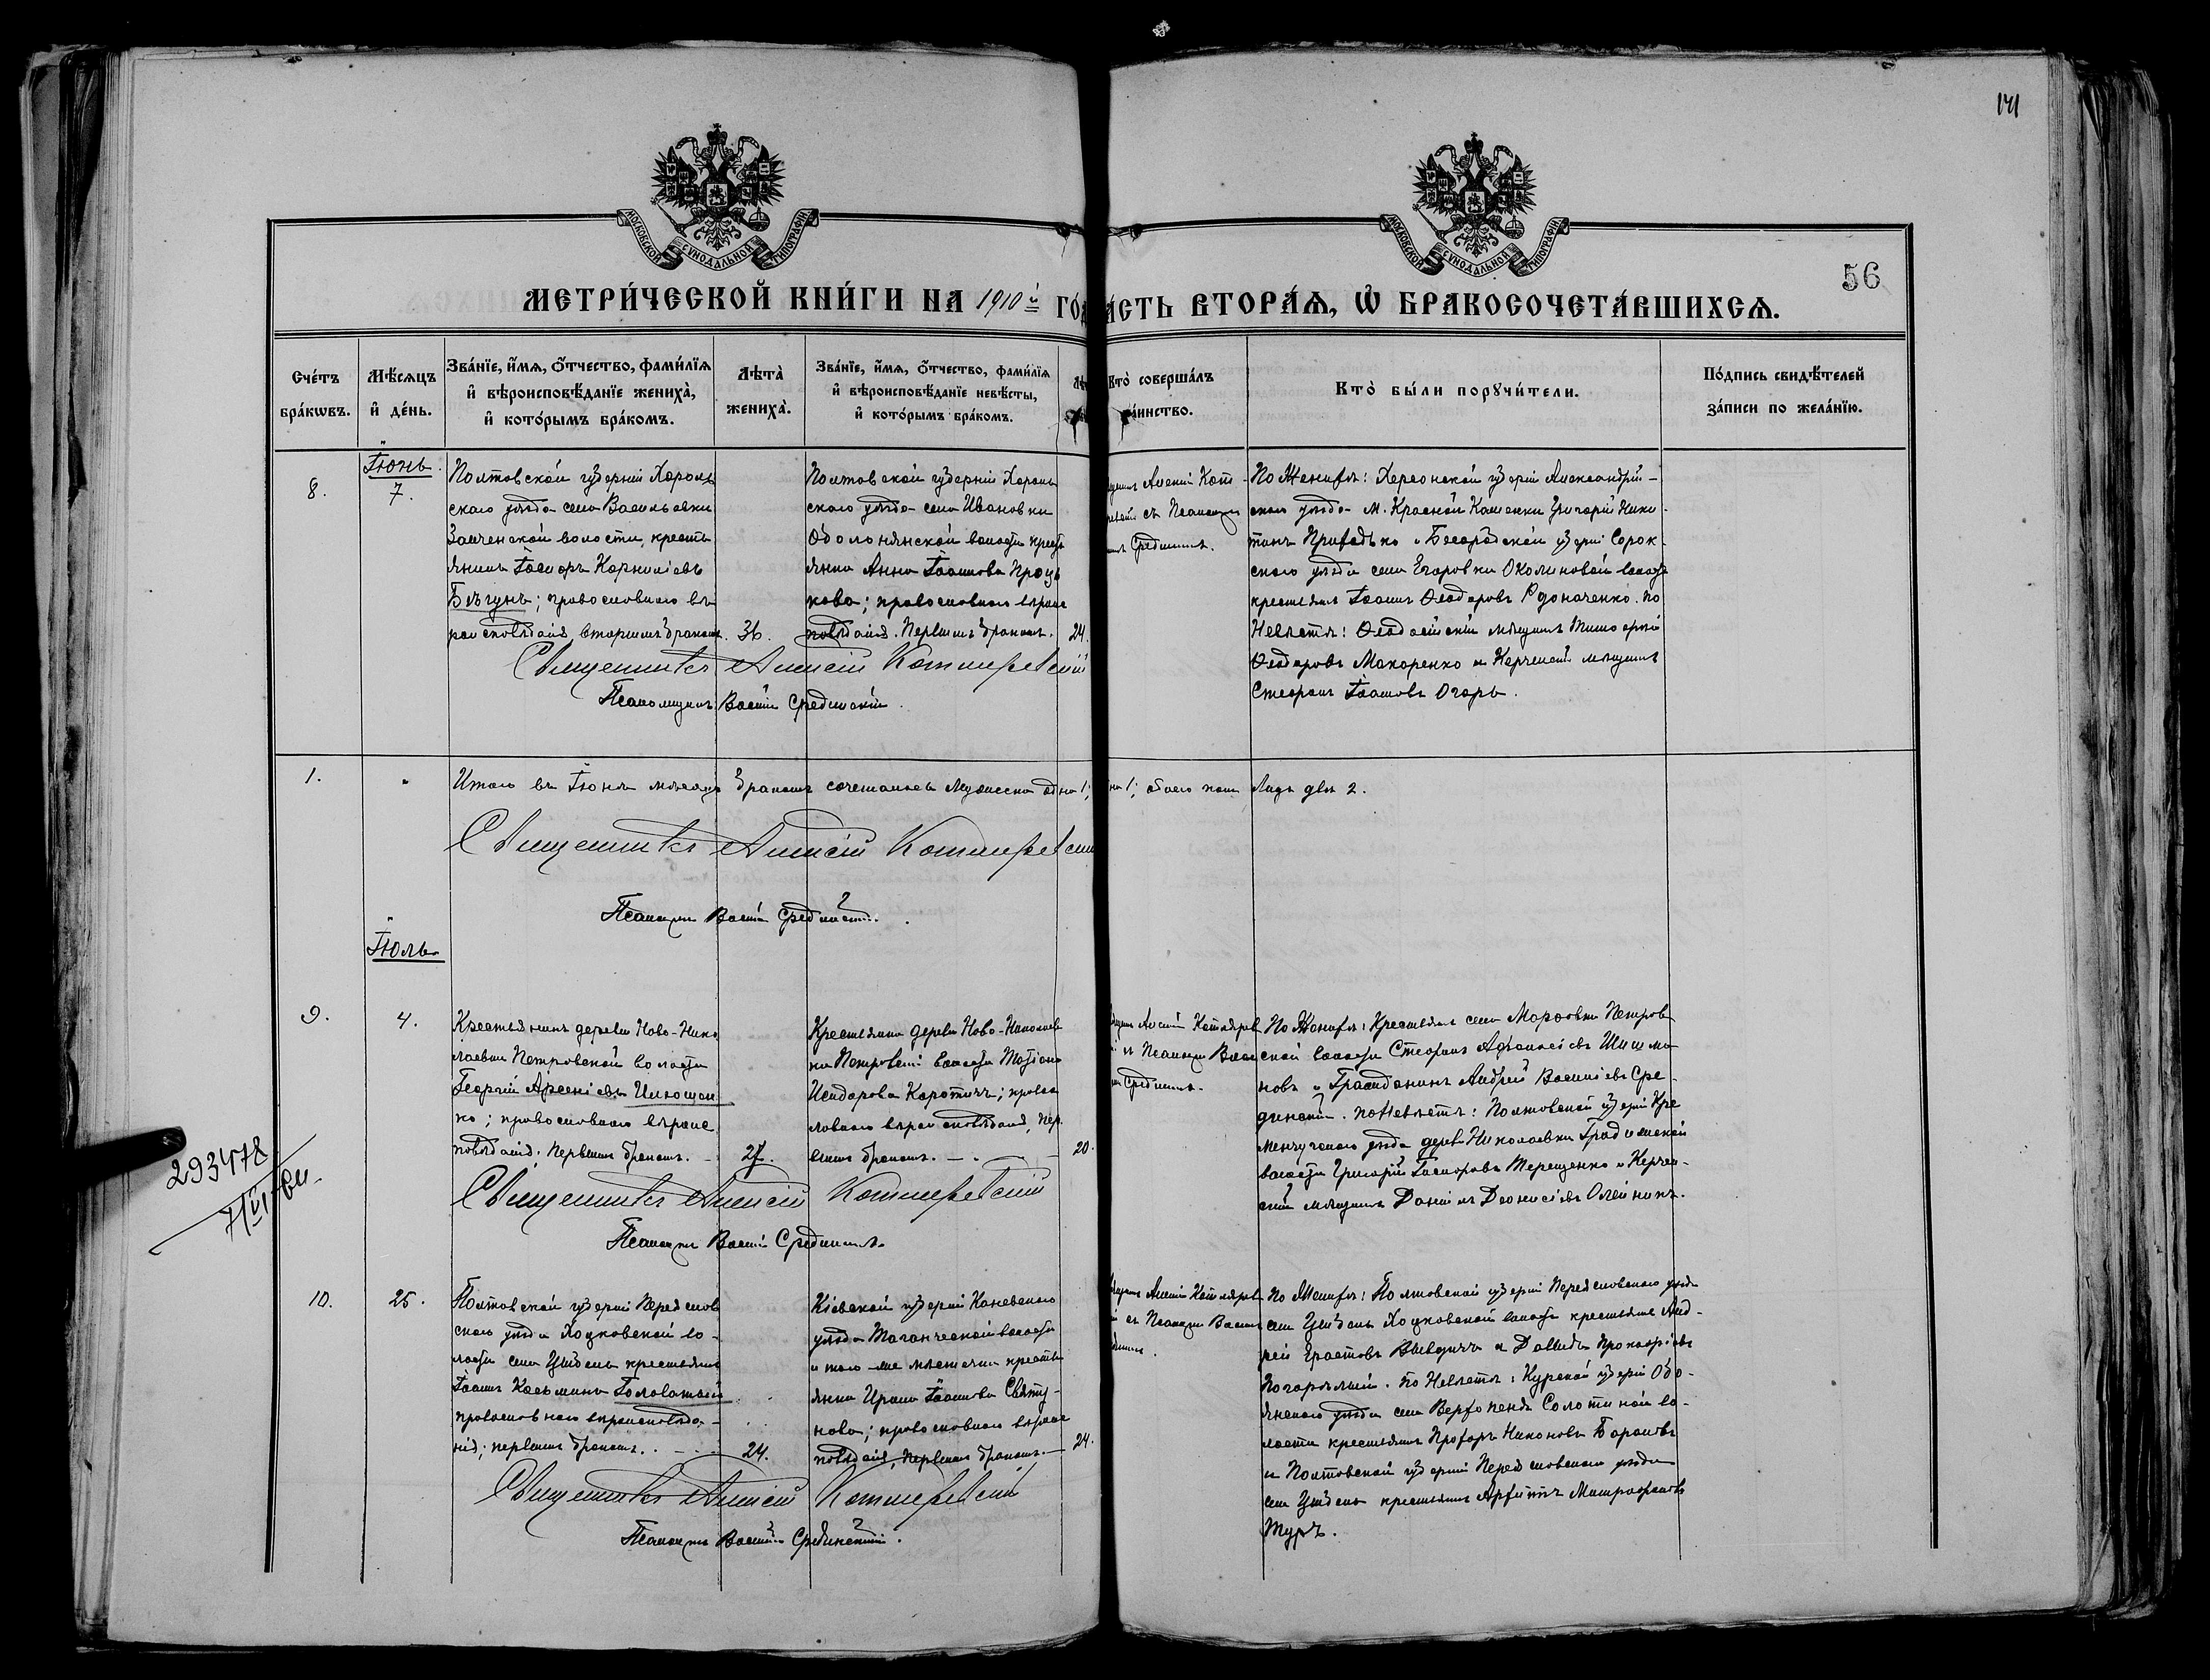 141
56
МОСКОВСКОЙ СѴНОДАЛЬНОЙ ТИПОГРАФІИ
МОСКОВСКОЙ СѴНОДАЛЬНОЙ ТИПОГРАФІИ
МЕТРИ́ЧЕСКОЙ КНИ́ГИ НА 1910й ГО
А́СТЬ ВТОРА́Ѧ, Ѡ҆ БРАКОСОЧЕТА́ВШИХСѦ.
Сче́тъ бра́кѡвъ.
Мѣ́сѧцъ и҆ де́нь.
Зва́нїе, и҆́мѧ, ѻ҆́тчество, фами́лїѧ
и҆ вѣроисповѣ́данїе жениха̀,
и҆ кото́рымъ бра́комъ.
Лѣта̀ жениха̀.
Зва́нїе, и҆́мѧ, ѻ҆́тчество, фами́лїѧ
и҆ вѣроисповѣ́данїе невѣ́сты,
и҆ кото́рымъ бра́комъ.
Кто̀ соверша́лъ
та́инство.
Кто̀ бы́ли порꙋчи́тели.
По́дпись свидѣ́телей
за́писи по жела́нїю.
Іюнь
8.
7.
Полтовской губерніи Хороль
скаго уѣзда села Васильевки
Заиченской волости, кресть
янинъ Іосифъ Корниліевъ
Бѣгунъ; православнаго вѣ
роисповѣданія, вторымъ бракомъ.
36.
Полтовской губерніи Хороль
скаго уѣзда села Ивановки
Оболонянской волости кресть
янка Анна Іоаннова Проць
кова; православнаго вѣроис
повѣданія. Первымъ бракомъ.
24.
Алексій Кот
съ Псаломщик
Срединскимъ.
По Женихѣ: Херсонской губерніи Александрій-
скаго уѣзда М. Красной Каменки Григорій Ники
тинъ Приходько и Бессарабской губерніи Сорок
скаго уѣзда села Егоровки Околиновой волости
крестьянинъ Іоаннъ Ѳеодоровъ Родоначенко. По
Невѣстѣ: Ѳеодосійскій мѣщанинъ Тимоѳей
Ѳеодоровъ Макаренко и Керченскій мѣщанинъ
Стефанъ Іоанновъ Огарь.
Священникъ Алексій Котляревскій
Псаломщикъ Василій Срединскій.
1.
Итого въ Іюнѣ мѣсяцѣ бракомъ сочеталось Мужеска одно 1;
на 1; обоего пола Лицъ два 2.
Священникъ Алексій Котляревскій
Псаломщикъ Василій Срединскій.
Іюль
9.
4.
Крестьянинъ деревни Ново-Нико
лаевки Петровской волости
Георгій Арсеніевъ Илющен
ко; православнаго вѣроис
повѣданія; Первымъ бракомъ.
27.
Крестьянка деревни Ново-Николаев
ки Петровской волости Татіана
Исидорова Коротичъ; право
славнаго вѣроисповѣданія, пер
вымъ бракомъ.
20.
Алексій Котлярев
Псаломщ Васи
Срединскимъ.
По Женихѣ: Крестьяне села Марѳовки Петров
ской волости Стефанъ Аѳанасіевъ Шишма
новъ и Гражданинъ Андрей Василіевъ Сре-
динскій. по Невѣстѣ: Полтовской губерніи Кре
менчугскаго уѣзда дерев Николаевки Градижской
волости Григорій Іосифовъ Терещенко и Керчен-
скій мѣщанинъ Даніилъ Діонисіевъ Олейникъ.
Священникъ Алексій Котляревскій
Псаломщикъ Василій Срединскій.
293478
10.
25.
Полтовской губерніи Переяслов
скаго уѣзда Хоцковской во-
лости села Цибель крестьянинъ
Іоаннъ Косьминъ Головатый
православнаго вѣроисповѣда-
нія; первымъ бракомъ.
24.
Кіевской губерніи Каневскаго
уѣзда Таганческой волости
и того-же мѣстечка кресть
янка Ирина Іоаннова Святу-
нова; православнаго вѣроис
повѣданія, первымъ бракомъ.
24.
Алексій Котлярев
съ Псаломщ Васил
По Женихѣ: Полтовской губерніи Переясловскаго уѣзда
села Цибель Хоцковской волости крестьяне Анд-
рей Ерастовъ Выведичъ и Давидъ Прокофіевъ
Погорѣлый. По Невѣстѣ: Курской губерніи Обо-
янскаго уѣзда села Верхопенья Солотиной во-
лости крестьянинъ Прохоръ Никоновъ Барановъ
и Полтовской губерніи Переясловскаго уѣзда
села Цибель крестьянинъ Архиппъ Митрофановъ
Туръ.
Священникъ Алексій Котляревскій
Псаломщикъ Василій Срединскій.